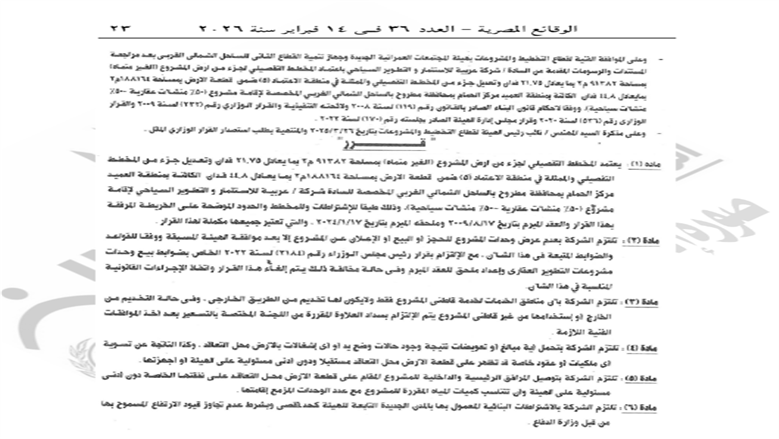 الوقائع المصرية – العدد ٣٦ فى ١٤ فبراير سنة ٢٠٢٦ ٢٣
- وعلى الموافقة الفنية لقطاع التخطيط والمشروعات بهيئة المجتمعات العمرانية الجديدة وجهاز تنمية القطاع الثانى للساحل الشمالى الغربى بعد مراجعة
المستندات والرسومات المقدمة من السادة / شركة عربية للإستثمار و التطوير السياحي بإعتماد المخطط التفصيلي لجزء من ارض المشروع (الغير منماه)
بمساحة ٩١٣٨٢ م٢ بما يعادل ٢١,٧٥ فدان وتعديل جزء من المخطط التفصيلي والممثلة في منطقة الاعتماد (٥) ضمن قطعة الارض بمساحة ١٨٨١٦٤م٢
بمايعادل ٤٤,٨ فدان الكائنة بمنطقة العميد مركز الحمام بمحافظة مطروح بالساحل الشمالي الغربي المخصصة لإقامة مشروع (٥٠٪ منشات عقارية -٥٠٪
منشات سياحية). ووفقا لاحكام قانون البناء الصادر بالقانون رقم (١١٩) لسنة ٢٠٠٨ ولائحته التنفيذية و القرار الوزاري رقم (٢٣٢) لسنة ٢٠٠٩ والقرار
الوزاري رقم (٥٣٦) لسنة ٢٠٢٠ وقرار مجلس إدارة الهيئة الصادر بجلسته رقم (١٧٠) لسنة ٢٠٢٢.
- وعلى مذكرة السيد المهندس / نائب رئيس الهيئة لقطاع التخطيط والمشروعات بتاريخ ٢٠٢٥/٣/٢٦ والمنتهية بطلب استصدار القرار الوزاري المثل.
قــــرر
مادة (١) : يعتمد المخطط التفصيلي لجزء من ارض المشروع (الغير منماه) بمساحة ٩١٣٨٢ م٢ بما يعادل ٢١,٧٥ فدان وتعديل جزء من المخطط
التفصيلي والممثلة في منطقة الاعتماد (٥) ضمن قطعة الارض بمساحة ١٨٨١٦٤م٢ بمايعادل ٤٤,٨ فدان الكائنة بمنطقة العميد
مركز الحمام بمحافظة مطروح بالساحل الشمالي الغربي المخصصة للسادة شركة / عربية للإستثمار و التطوير السياحي لإقامة
مشروع (٥٠٪ منشات عقارية -٥٠٪ منشات سياحية). وذلك طبقا للإشتراطات وللمخطط والحدود الموضحة على الخريطة المرفقة
بهذا القرار والعقد المبرم بتاريخ ٢٠٠٩/٨/١٧ وملحقه المبرم بتاريخ ٢٠٢٤/١/١٧. والتي تعتبر جميعها مكملة لهذا القرار .
مادة (٢) : تلتزم الشركة بعدم عرض وحدات المشروع للحجز أو البيع أو الإعلان عن المشروع إلا بعد موافقة الهيئة المسبقة ووفقا للقواعد
والضوابط المتبعة فى هذا الشأن. مع الإلتزام بقرار رئيس مجلس الوزراء رقم (٢١٨٤) لسنة ٢٠٢٢ الخاص بضوابط بيع وحدات
مشروعات التطوير العقارى وإعداد ملحق للعقد المبرم وفى حالة مخالفة ذلك يتم إلغاء هذا القرار واتخاذ الإجراءات القانونية
المناسبة في هذا الشان.
مادة (٣) : تلتزم الشركة بأن مناطق الخدمات لخدمة قاطنى المشروع فقط ولايكون لها تخديم من الطريق الخارجى. وفى حالة التخديم من
الخارج أو إستخدامها من غير قاطنى المشروع يتم الإلتزام بسداد العلاوة المقررة من اللجنة المختصة بالتسعير بعد أخذ الموافقات
الفنية اللازمة .
مادة (٤) : تلتزم الشركة بتحمل أية مبالغ أو تعويضات نتيجة وجود حالات وضع يد أو أى إشغالات بالارض محل التعاقد. وكذا الناتجة عن تسوية
أى ملكيات أو عقود خاصة قد تظهر على قطعة الارض محل التعاقد مستقبلا ودون أدنى مسئولية على الهيئة أو أجهزتها.
مادة (٥) : تلتزم الشركة بتوصيل المرافق الرئيسية والداخلية للمشروع المقام على قطعة الارض محل التعاقد على نفقتها الخاصة دون أدنى
مسئولية على الهيئة وان تتناسب كميات المياه المقررة للمشروع مع عدد الوحدات المزمع إقامتها.
مادة (٦) : تلتزم الشركة بالاشتراطات البنائية المعمول بها بالمدن الجديدة التابعة للهيئة كحد أقصى وبشرط عدم تجاوز قيود الارتفاع المسموح بها
من قبل وزارة الدفاع .